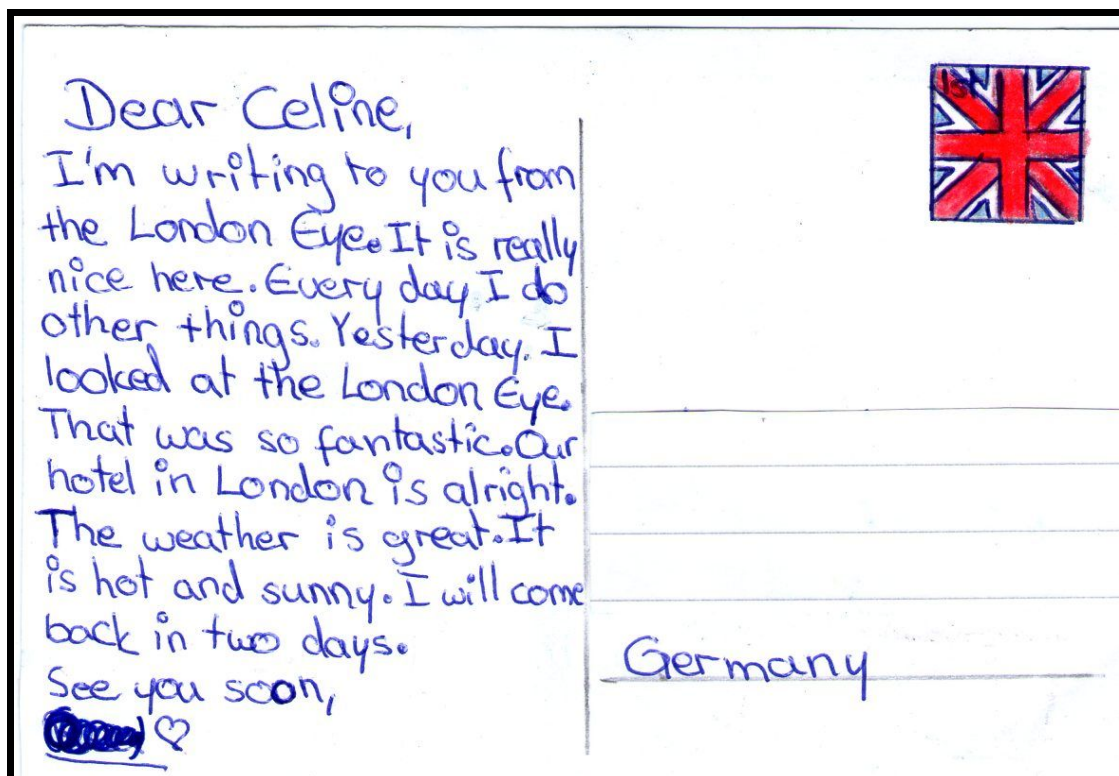 Dear Celine,
I'm writing to you from
the London Eye. It is really
nice here. Every day I do
other things. Yesterday. I
looked at the London Eye.
That was so fantastic. Our
hotel in London is alright.
The weather is great. It
is hot and sunny. I will come
back in two days.
See you soon,
1st
Germany